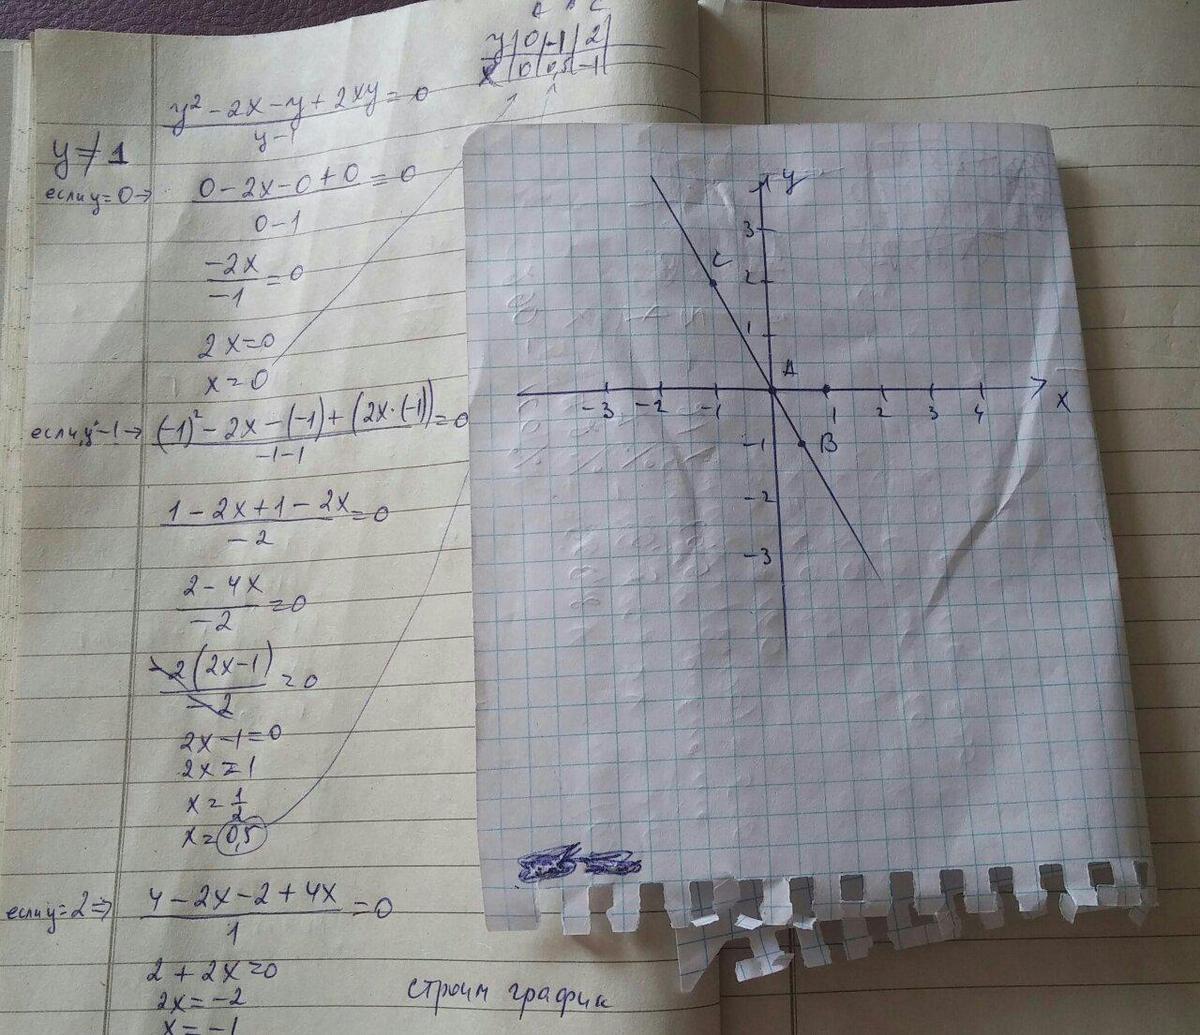 A B C
y | 0 | -1 | 2
x | 0 | 0,5 | -1
y² - 2x - y + 2xy = 0
y - 1
y ≠ 1
если y = 0 →
0 - 2x - 0 + 0 = 0
0 - 1
-2x = 0
-1
2x = 0
x = 0
если y -1 →
(-1)² - 2x - (-1) + (2x · (-1)) = 0
-1 - 1
1 - 2x + 1 - 2x = 0
-2
2 - 4x = 0
-2
-2(2x - 1) = 0
-2
2x - 1 = 0
2x = 1
x = 1/2
x = 0,5
если y = 2 ⇒
4 - 2x - 2 + 4x = 0
1
2 + 2x = 0
2x = -2
x = -1
строим график
y
3
C
2
1
A
-3 -2 -1 1 2 3 4 x
-1 B
-2
-3